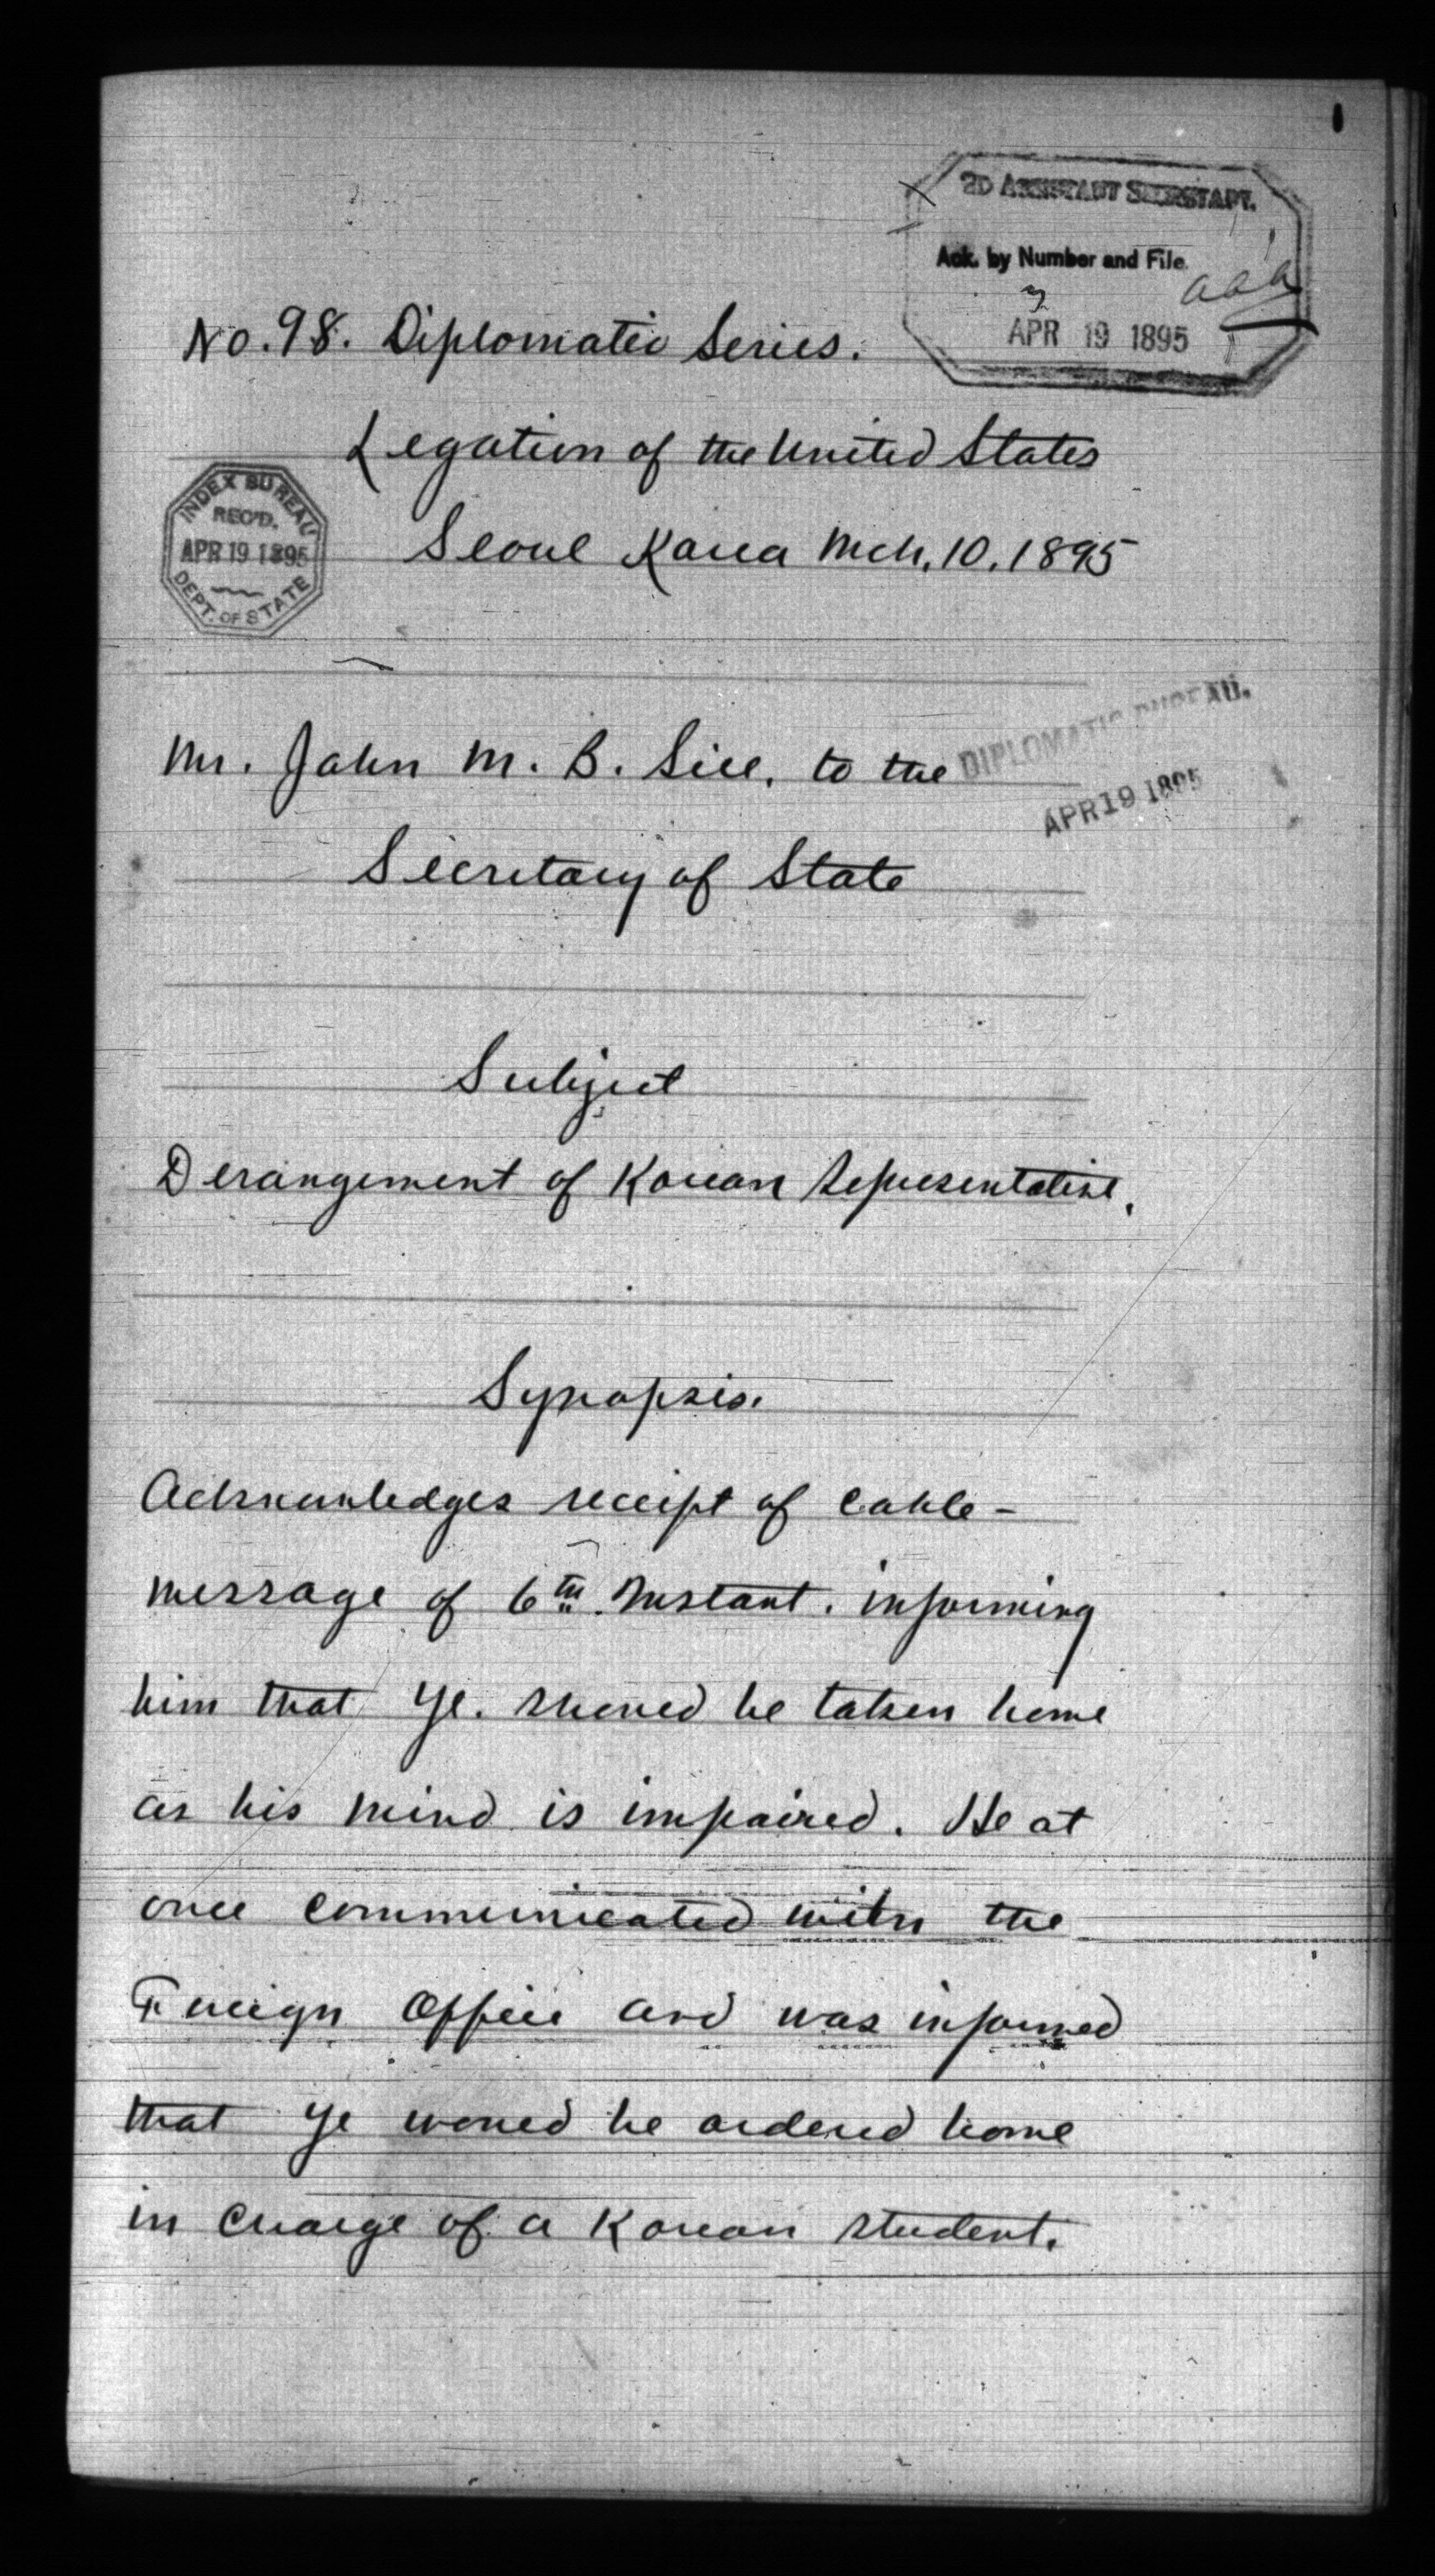 2D ASSISTANT SECRETARY.
Ack. by Number and File.
APR 19 1895
No. 98. Diplomatic Series.
Legation of the United States
INDEX BUREAU
REC'D.
APR 19 1895
DEPT. OF STATE
Seoul Korea Mch. 10. 1895
DIPLOMATIC BUREAU.
APR 19 1895
Mr. John M. B. Sill, to the
Secretary of State
Subject
Derangement of Korean Representative.
Synopsis.
Acknowledges receipt of cable-
message of 6th. Instant. informing
him that Ye. should be taken home
as his mind is impaired. He at
once communicated with the
Foreign Office and was informed
that Ye would be ordered home
in charge of a Korean student.